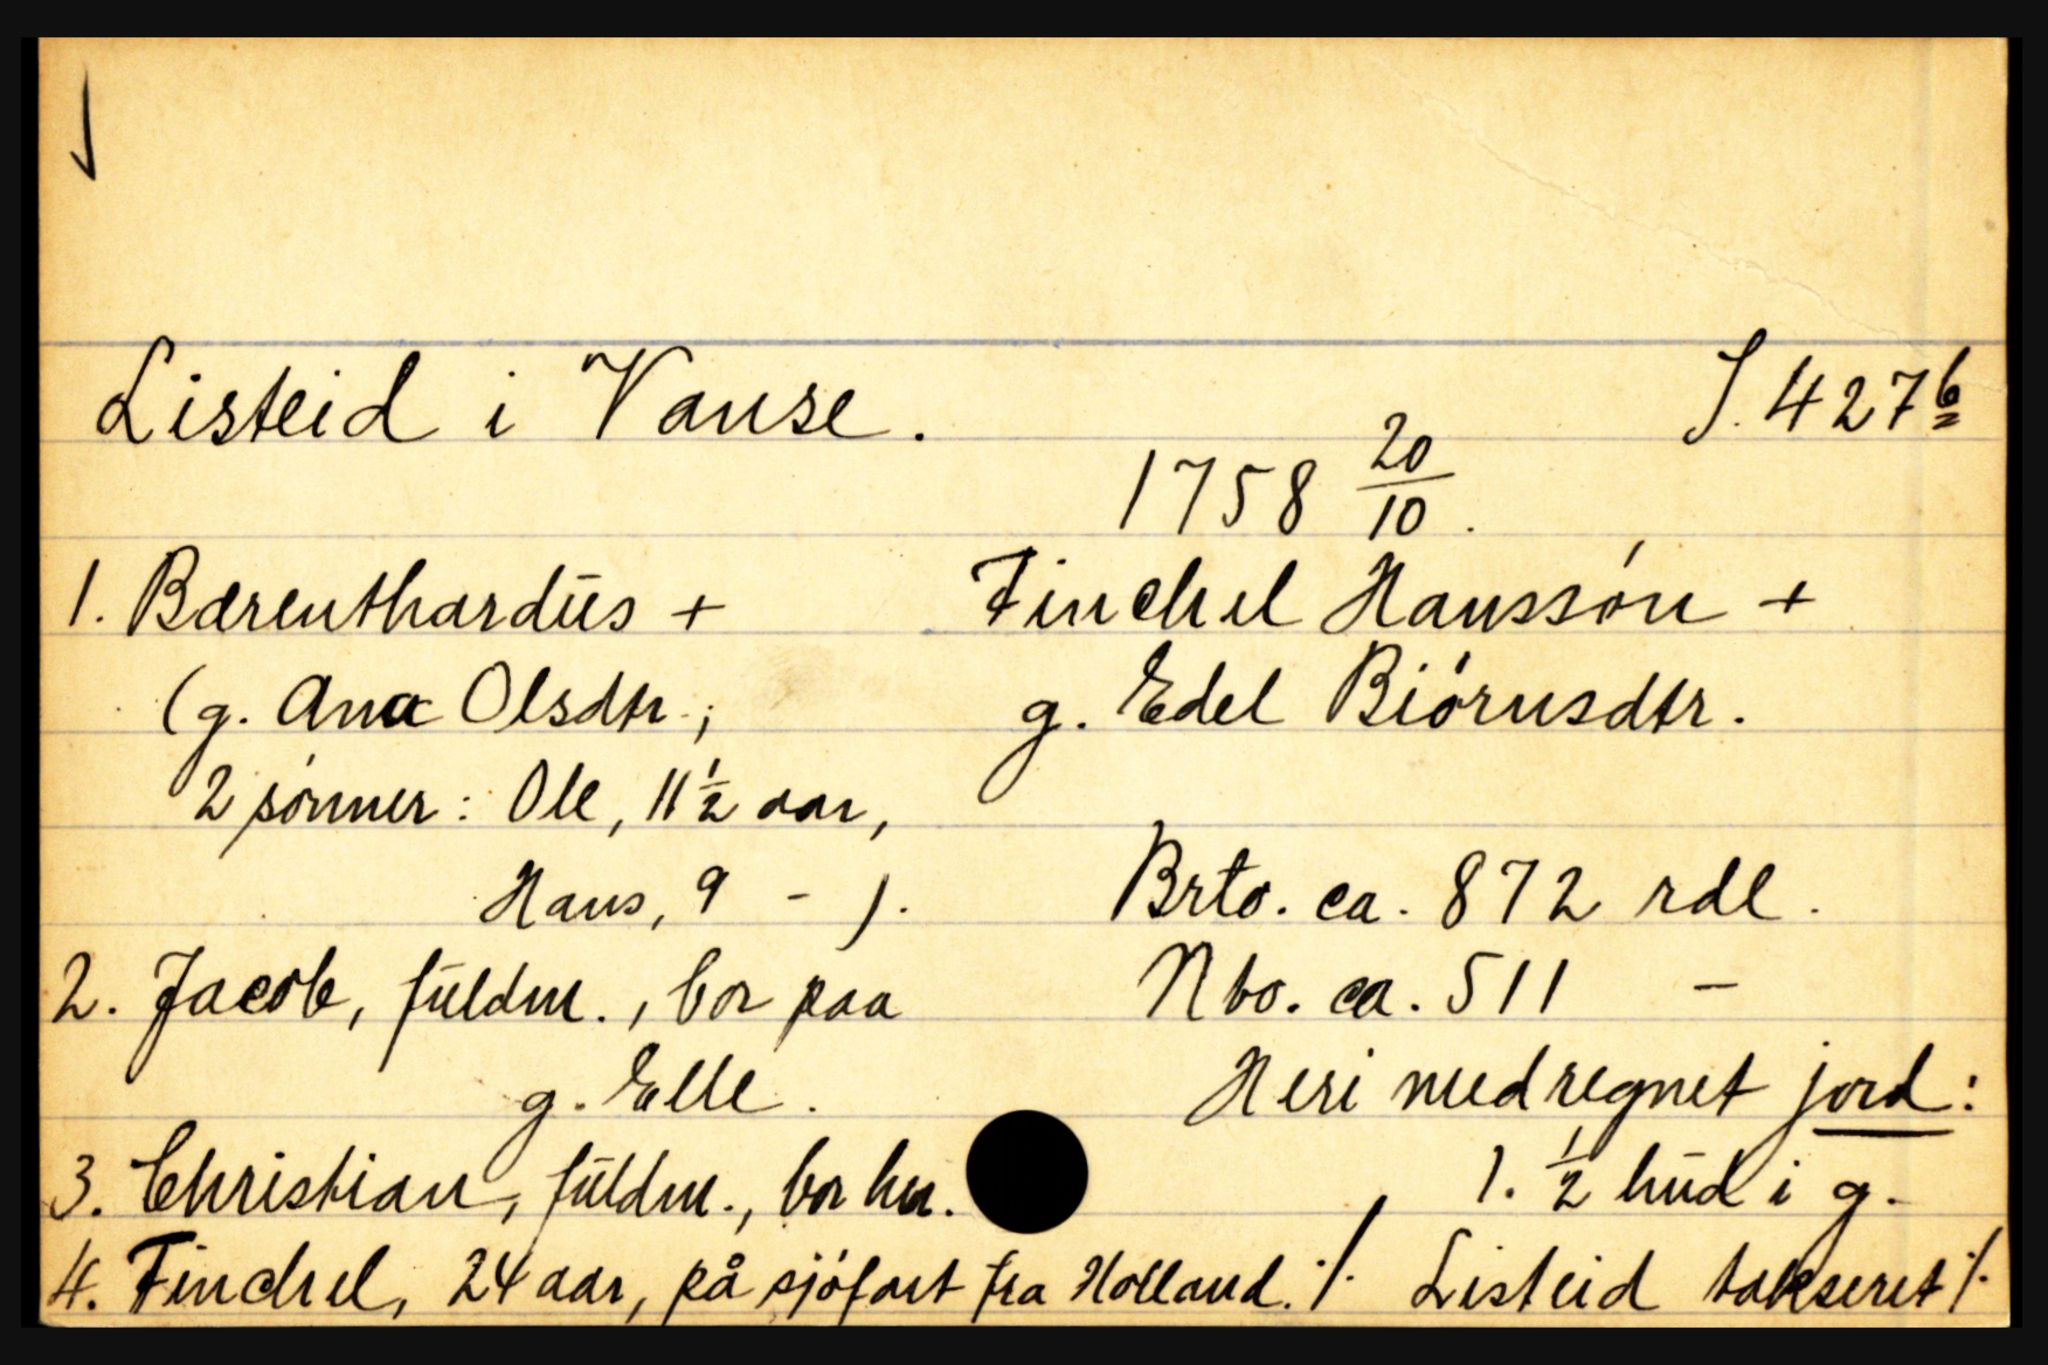 Listeid i Vanse. S. 427b
1758 20/10.
1. Bærenthardüs +
(g. Ana Olsdtr.;
2 sønner: Ole, 11 1/2 aar,
Hans, 9 - ).
2. Jacob, füldm., bor paa
g. Elle.
3. Christian, füldm., bor her.
4. Finchel, 24 aar, på sjöfart fra Holland. ·/.
Finchel Hanssön +
g. Edel Biörnsdtr.
Brto. ca. 872 rdl.
Nto. ca. 511 -
Heri medregnet jord:
1. 1/2 hüd i g.
Listeid takseret ·/.